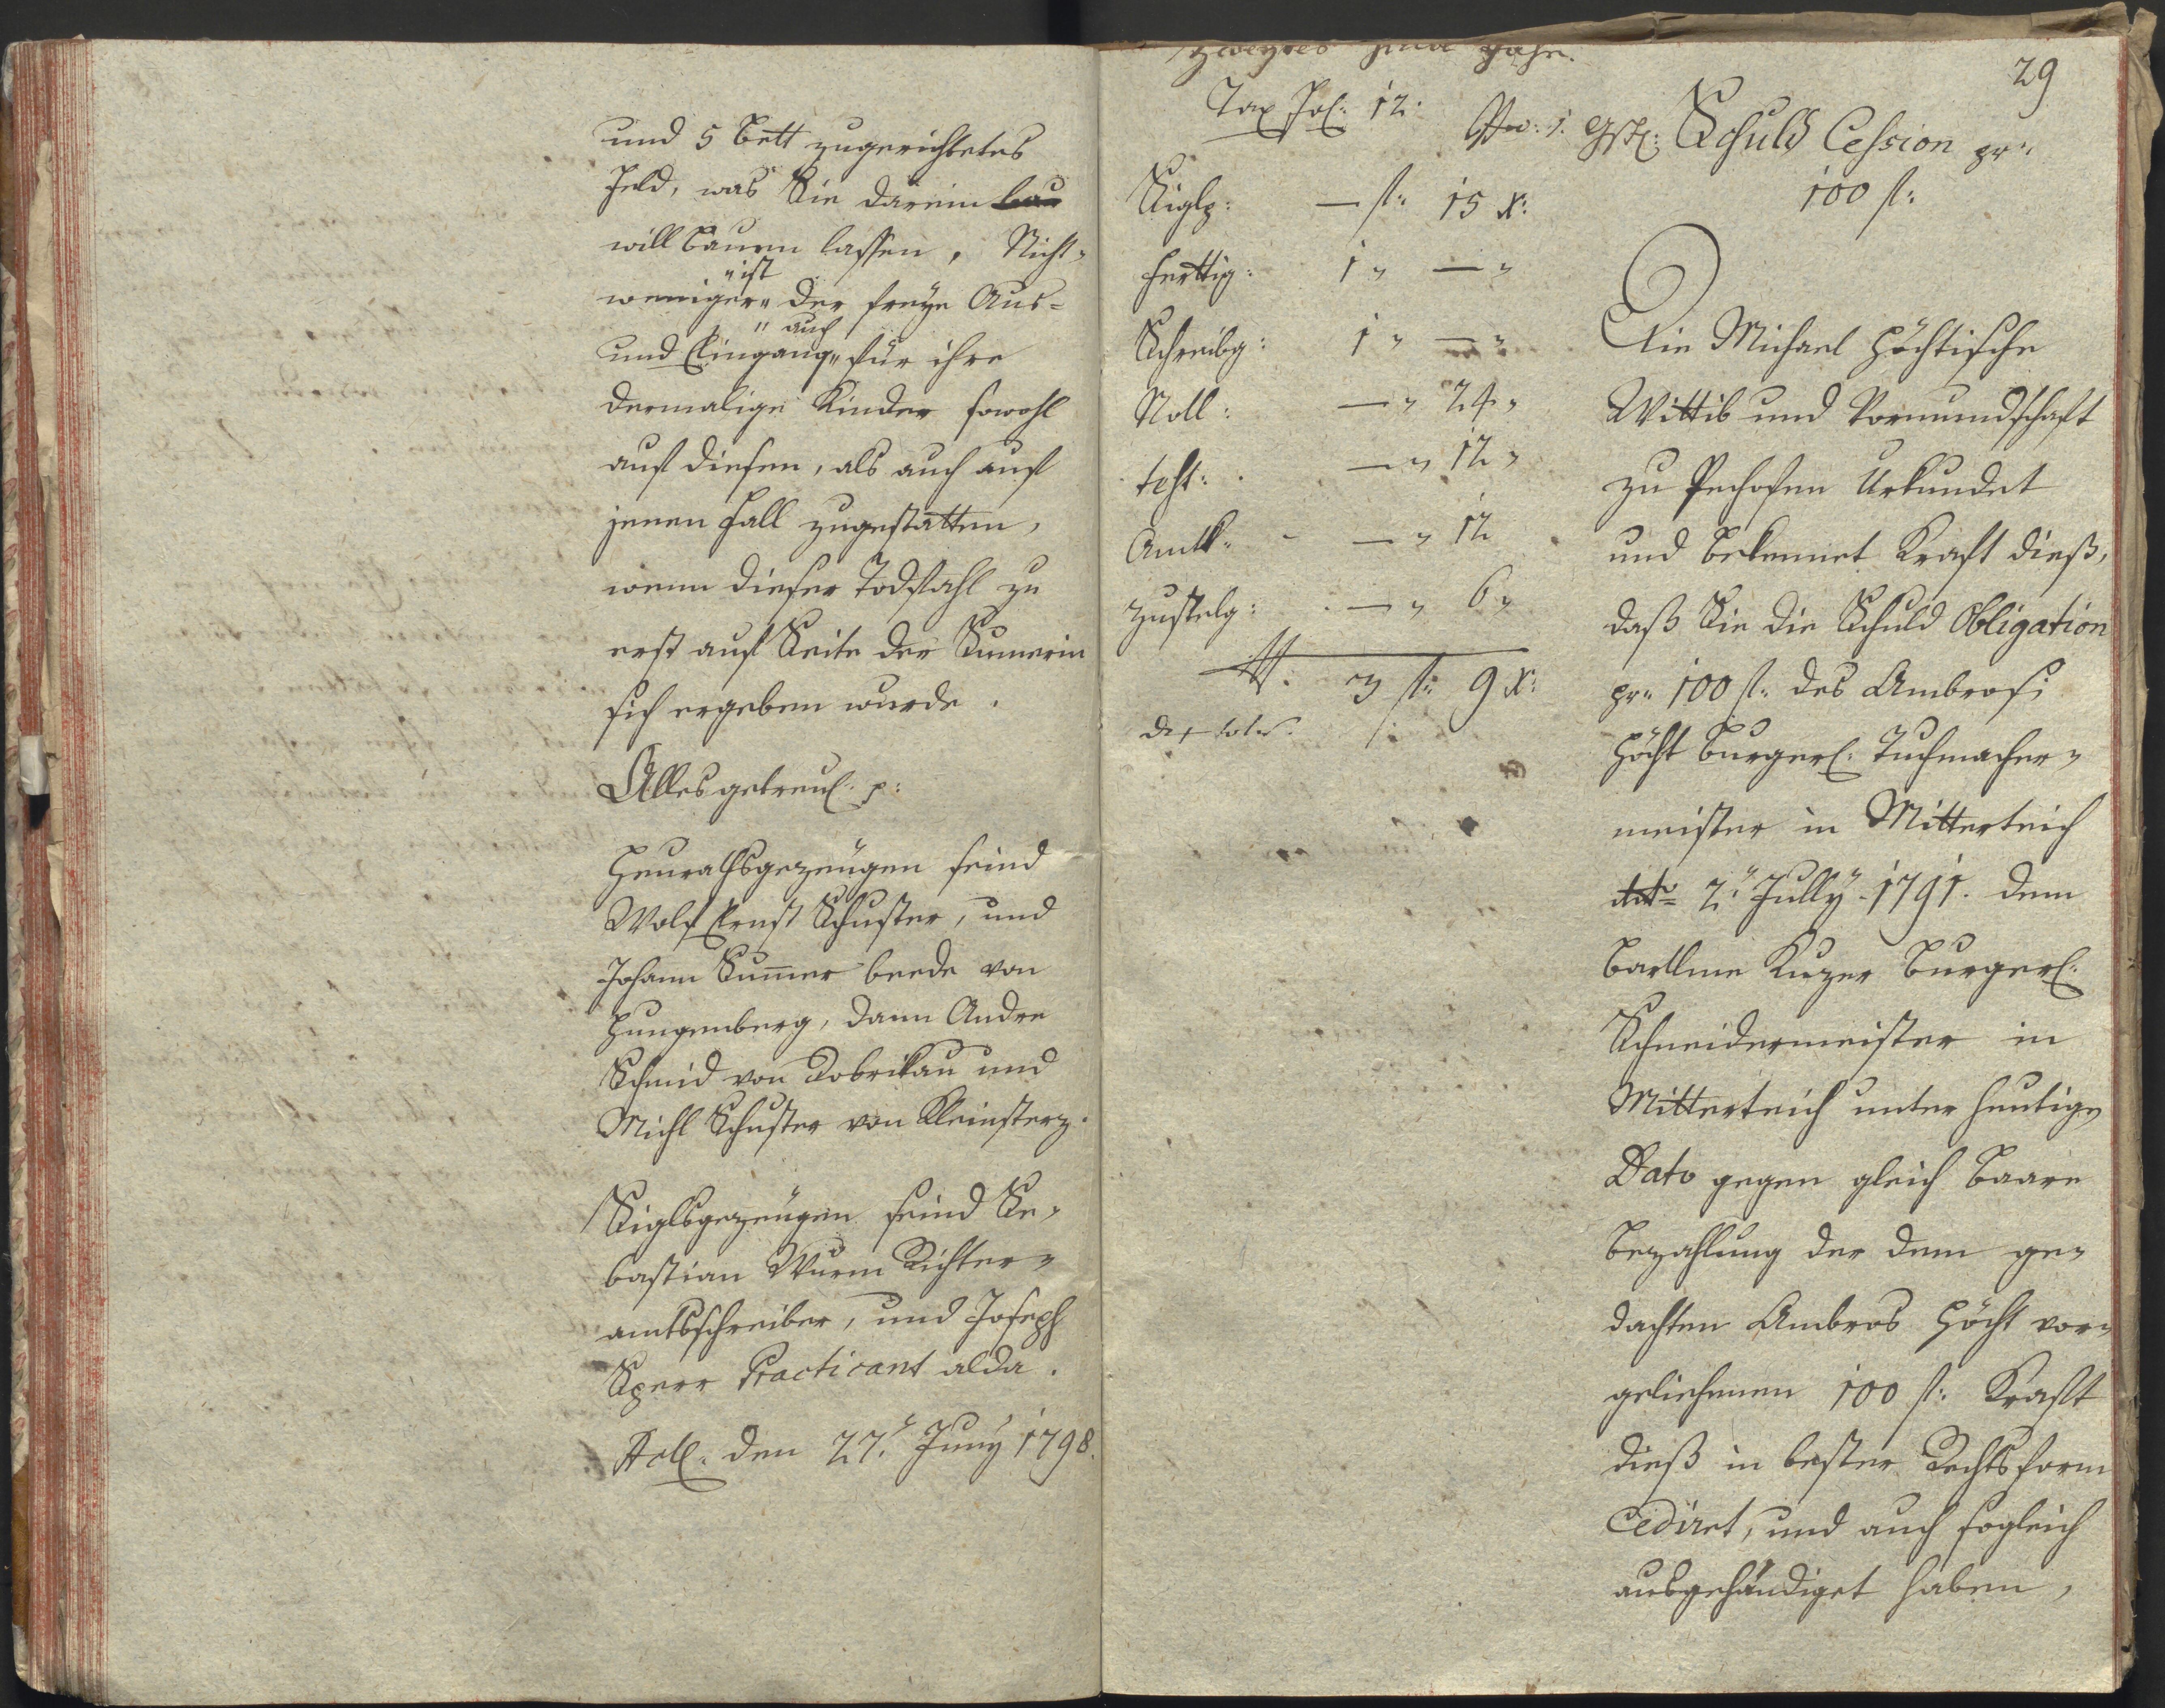 und 5 Bett zugerichtetes
Feld, was Sie darein
will bauen lassen, Nicht-
weniger "ist der freye Aus-
und Eingang "auch für ihre
dermalige Kinder sowohl
auf diesen, als auch auf
jenen Fall zugestatten,
wenn dieser Todfahl zu
erst auf Seite der Sumerin
sich ergeben wurde.
Alles getreul. p:
Heurathsgezeugen seind
Wolf Ernst Schuster, und
Johann Sum̄er beede von
Hungenberg, dann Andre
Schmid von Dobrikau und
Michl Schuster von Kleinsterz.
Siglsgezeugen seind Se-
bastian Wurm Richter-
amtsschreiber, und Joseph
Sperr Practicant alda.
Act. den 27. Juny 1798.
29
Tax Fol: 12.
Siglg: — fl: 15 x:
Fertig: 1 " — "
Schreibg: 1 " — "
Noll: — " 24 "
— " 12 "
Amtk: — " 12
Zustelg: — " 6 "
3 fl: 9 x:
Schuld Cession pr:
100 fl:
Die Michael Höchtische
Wittib und Vormundschaft
zu Pechofen Urkundet
und bekennet Kraft dieß,
daß Sie die Schuld Obligation
pr: 100 fl: des Ambrosi
Höcht burgerl: Tuchmacher-
meister in Mitterteich
2. July 1791. dem
Bartlme Kuzer burgerl:
Schneidermeister in
Mitterteich unter heutig
Dato gegen gleich baare
Bezahlung der dem ge-
dachten Ambros Höcht vor-
geliehenen 100 fl: Kraft
dieß in bester Rechtsform
cediret, und auch sogleich
ausgehändiget haben,